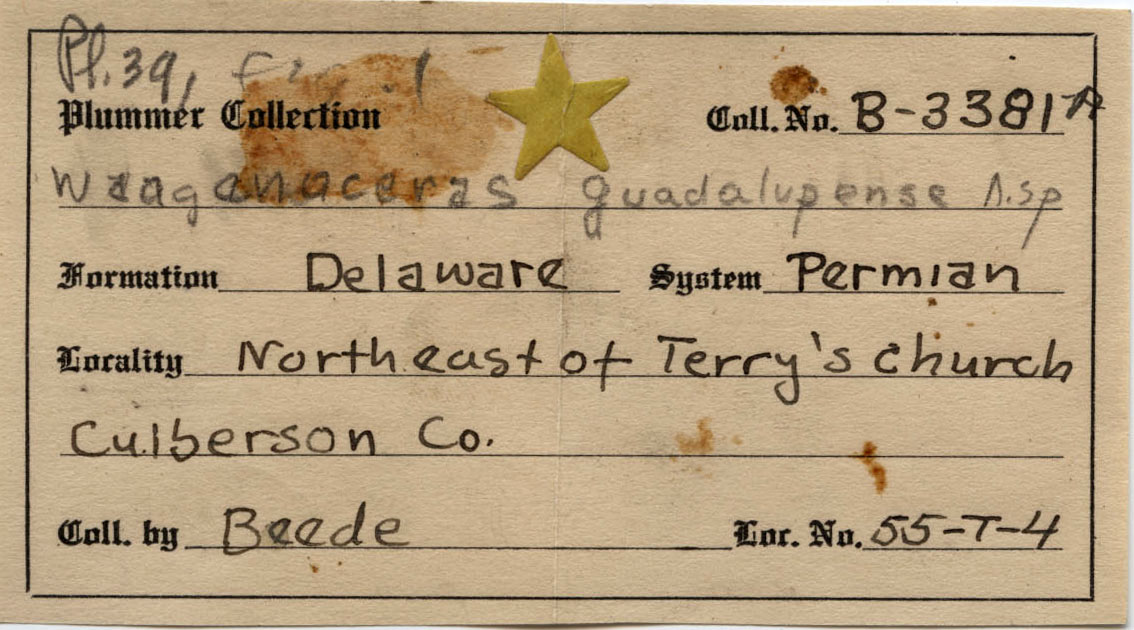 Pl. 39, fig. 1
Plummer Collection Coll. No. B-3381A
Waagenoceras guadalupense n.sp
Formation Delaware System Permian
Locality Northeast of Terry's church
Culberson Co.
Coll. by Beede Loc. No. 55-T-4